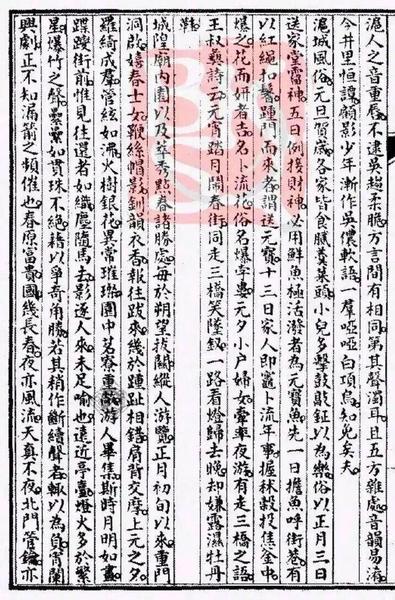 滬人之音重唇不逮吳趨柔脆方言間有相同第其聲濁耳且五方雜處音韻易淆
今井里恒謹顧影少年漸作吳儂軟語一羣啞啞白項烏知免矣夫
滬城風俗元旦賀歲各家皆食膩羹糕頭小兒多擊鼓敲鉦以為樂俗以正月三日
送家堂竈神五日例接財神必用鮮魚極活潑者為元寶魚先一日擔魚呼街巷有
以紅繩扣鬐踵門而來者謂送元寶十三日家人即竈卜流年事握秫穀投焦釜中
爆之花而妍者吉名卜流花俗名爆孛婁元夕小戶婦女牽率夜游有走三橋之語
王叔彝詩云元宵踏月鬧春街同走三橋笑墜釵一路看燈歸去晚卻嫌露濕牡丹
鞵
城隍廟內園以及萃秀點春諸勝處每於朔望拔關縱人游覽正月初旬以來重門
洞啟嬉春士女鞭絲帽影釧韻衣香報往跋來幾於踵趾相錯肩背交摩上元之夕
羅綺成羣管絃如沸火樹銀花異常璀璨園中茗寮重敞游人畢集斯時月明如晝
蹀躞街前惟見往還者如織塵隨馬去影逐人來未足喻也遠近亭臺燈火多於繁
星爆竹之聲纍纍如貫珠不絕藉以爭奇角勝若其稍作斷續聲者輒以為負宵闌
興劇正不知漏箭之頻催也春原富貴國幾長春夜亦風流天真不夜北門管鑰亦